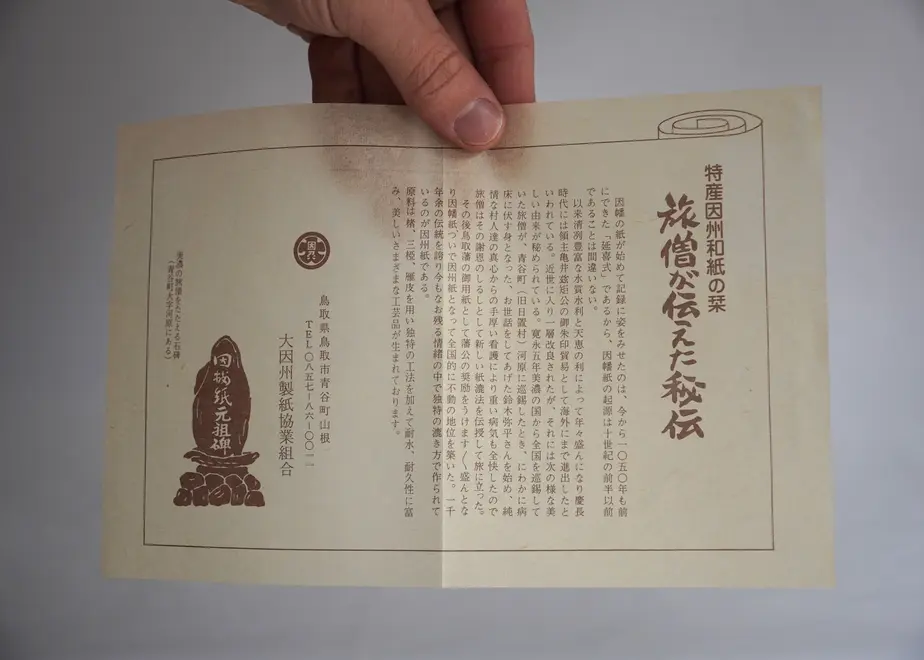 特産因州和紙の栞
旅僧が伝えた秘伝
因幡の紙が始めて記録に姿をみせたのは、今から一〇五〇年も前
にできた「延喜式」であるから、因幡紙の起源は十世紀の前半以前
であることは間違いない。
以来清冽豊富な水質水利と天恵の利によって年々盛んになり慶長
時代には領主亀井茲矩公の御朱印貿易として海外にまで進出したと
いわれている。近世に入り一層改良されたが、それには次の様な美
しい由来が秘められている。寛永五年美濃の国から全国を巡錫して
いた旅僧が、青谷町（旧日置村）河原に巡錫したとき、にわかに病
床に伏す身となった、お世話をしてあげた鈴木弥平さんを始め、純
情な村人達の真心からの手厚い看護により重い病気も全快したので
旅僧はその謝恩のしるしとして新しい紙漉法を伝授して旅に立った。
その後鳥取藩の御用紙として藩公の奨励をうけます〳〵盛んとな
り因幡紙ついで因州紙となって全国的に不動の地位を築いた。一千
年余の伝統を誇り今もなお残る情緒の中で独特の漉き方で作られて
いるのが因州紙である。
原料は楮、三椏、雁皮を用い独特の工法を加えて耐水、耐久性に富
み、美しいさまざまな工芸品が生まれております。
因州
鳥取県鳥取市青谷町山根
TEL〇八五七－八六－〇〇一一
大因州製紙協業組合
因幡紙元祖碑
美濃の旅僧をたたえる石碑
（青谷町大字河原にある）